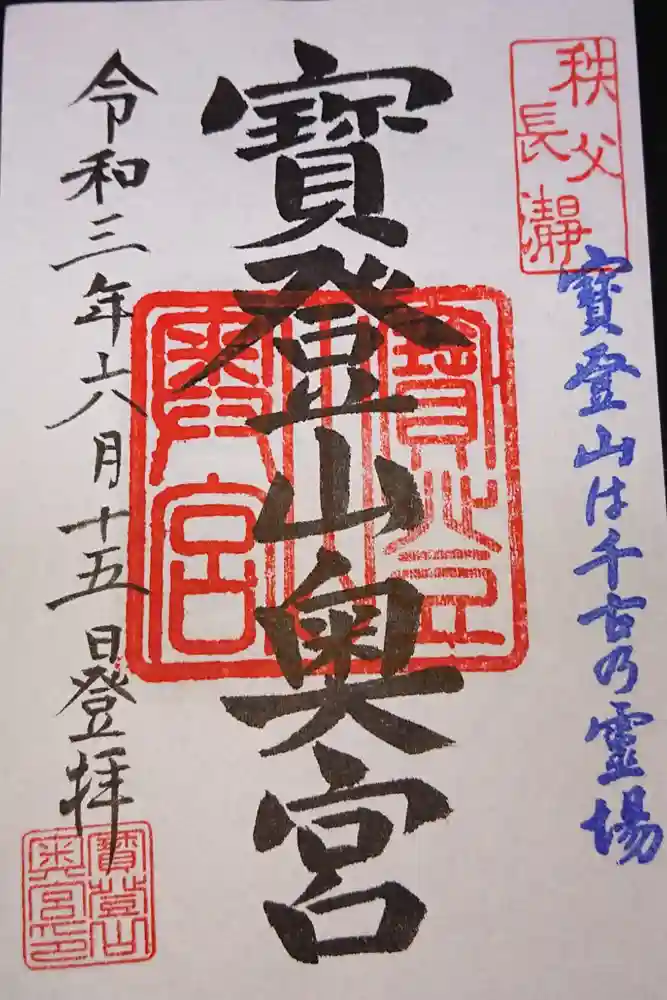 秩父
長瀞
寳登山は千古乃霊場
寳登山奥宮
寳登山
奥宮
令和三年六月十五日登拝
寳登山
奥宮印